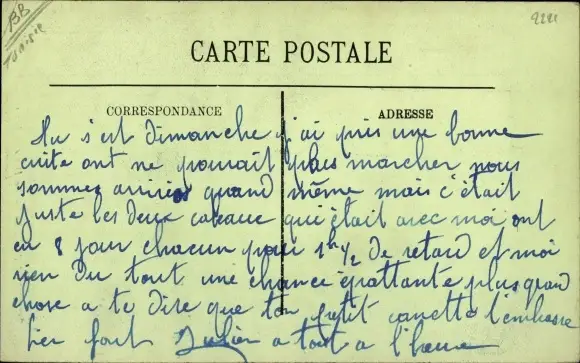 BB
Tunisie
9221
CARTE POSTALE
CORRESPONDANCE
ADRESSE
s'est dimanche j'ai pris une bonne
cuite ont ne pouvait plus marcher nous
sommes arrivés quand même mais c'était
juste les deux cabeaux qui était avec moi ont
eu 8 jour chacun pour 1h 1/2 de retard et moi
rien du tout une chance épattante plus grand
chose a te dire que ton petit canetto t'embrasse
bien fort Julien a tout a l'heure